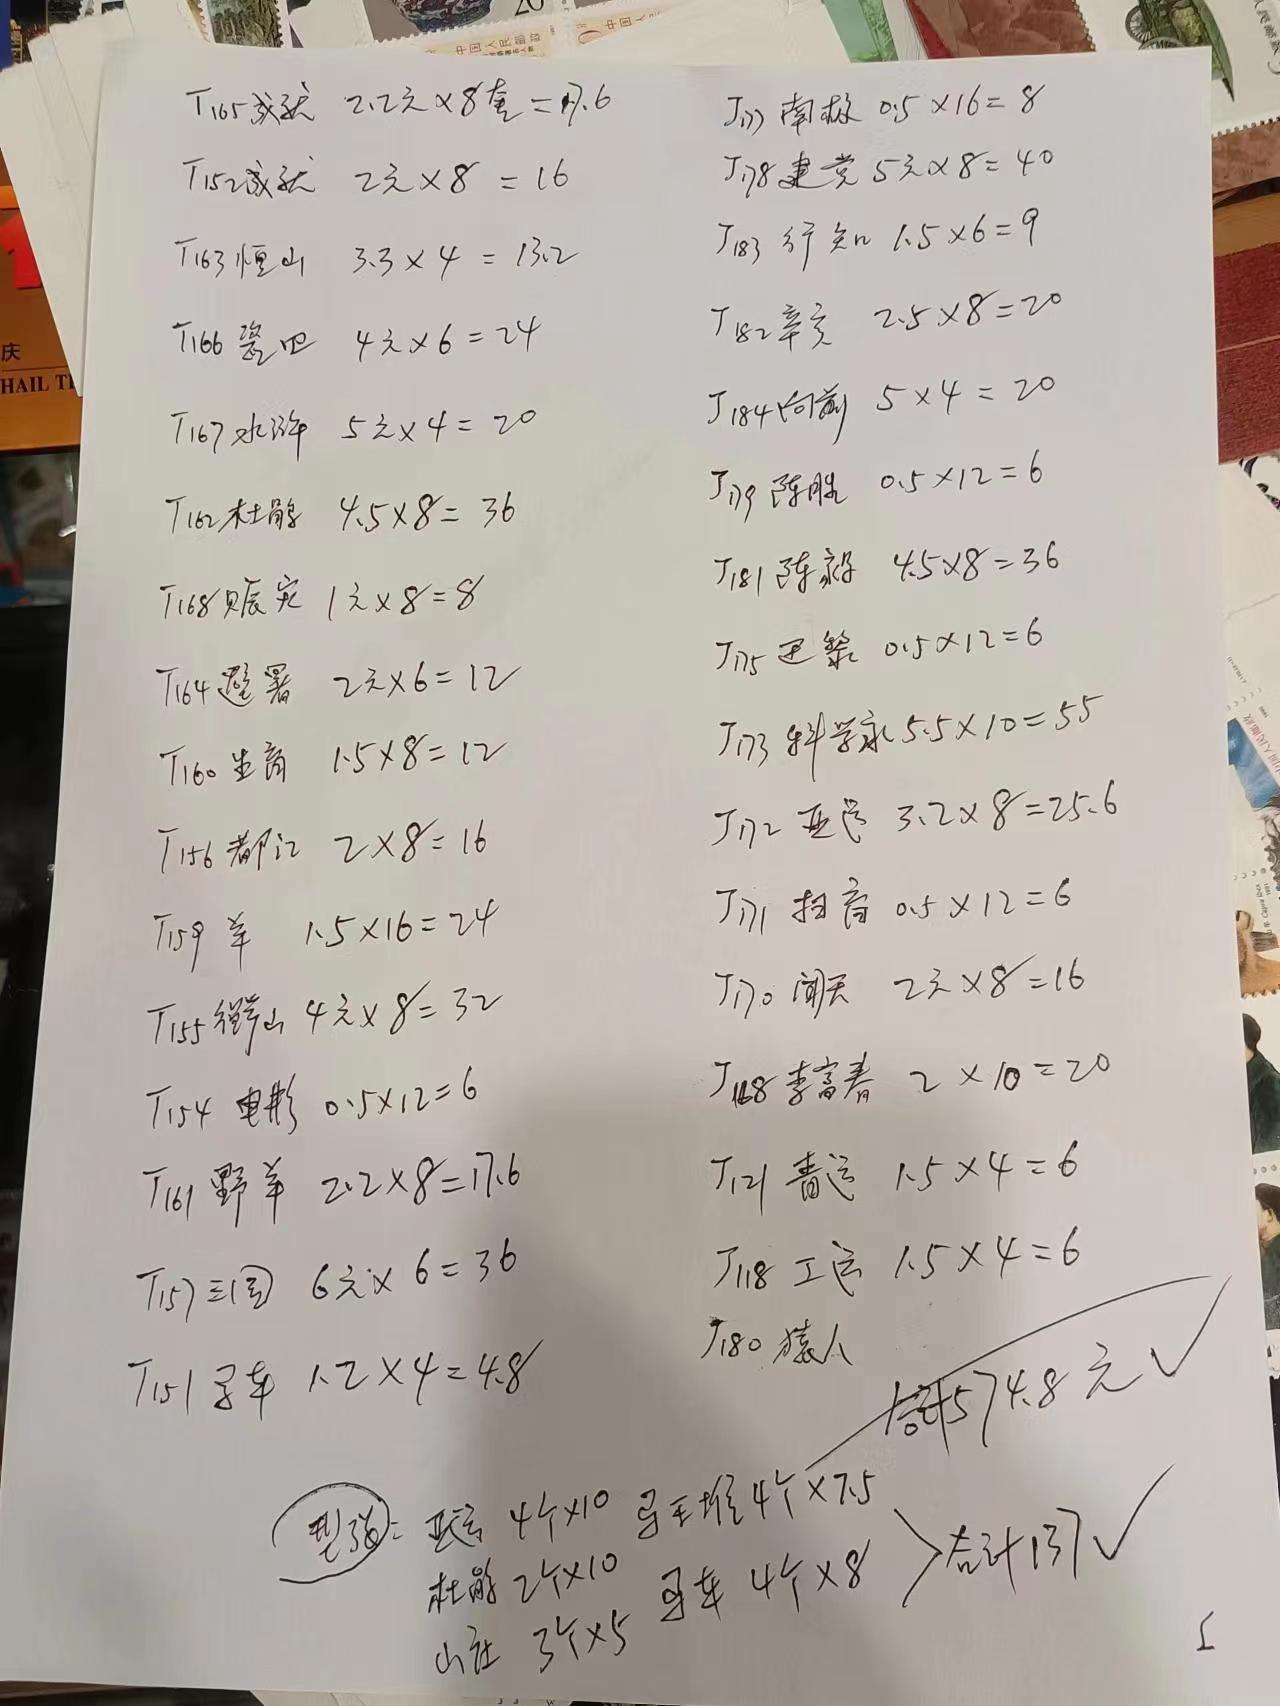 中国人民邮政
中国人民邮政
庆
T165成就 2.2元×8套=17.6
T152成就 2元×8=16
T163恒山 3.3×4=13.2
T166瓷 4元×6=24
T167水浒 5元×4=20
T162杜鹃 4.5×8=36
T168赈灾 1元×8=8
T164避暑 2元×6=12
T160生育 1.5×8=12
T156都江 2×8=16
T159羊 1.5×16=24
T155衡山 4元×8=32
T154电影 0.5×12=6
T161野羊 2.2×8=17.6
T157三国 6元×6=36
T151马车 1.2×4=4.8
J177南极 0.5×16=8
J178建党 5元×8=40
J183行知 1.5×6=9
J182辛亥 2.5×8=20
J184向前 5×4=20
J179陈胜 0.5×12=6
J181陈毅 4.5×8=36
J175巴黎 0.5×12=6
J173科学家5.5×10=55
J172亚运 3.2×8=25.6
J171扫盲 0.5×12=6
J170闻天 2元×8=16
J168李富春 2×10=20
J121青运 1.5×4=6
J118工运 1.5×4=6
J180猿人
合计574.8元✓
型张: 亚运 4个×10 马王堆4个×7.5
杜鹃 2个×10 马车 4个×8
山庄 3个×5
合计137✓
1